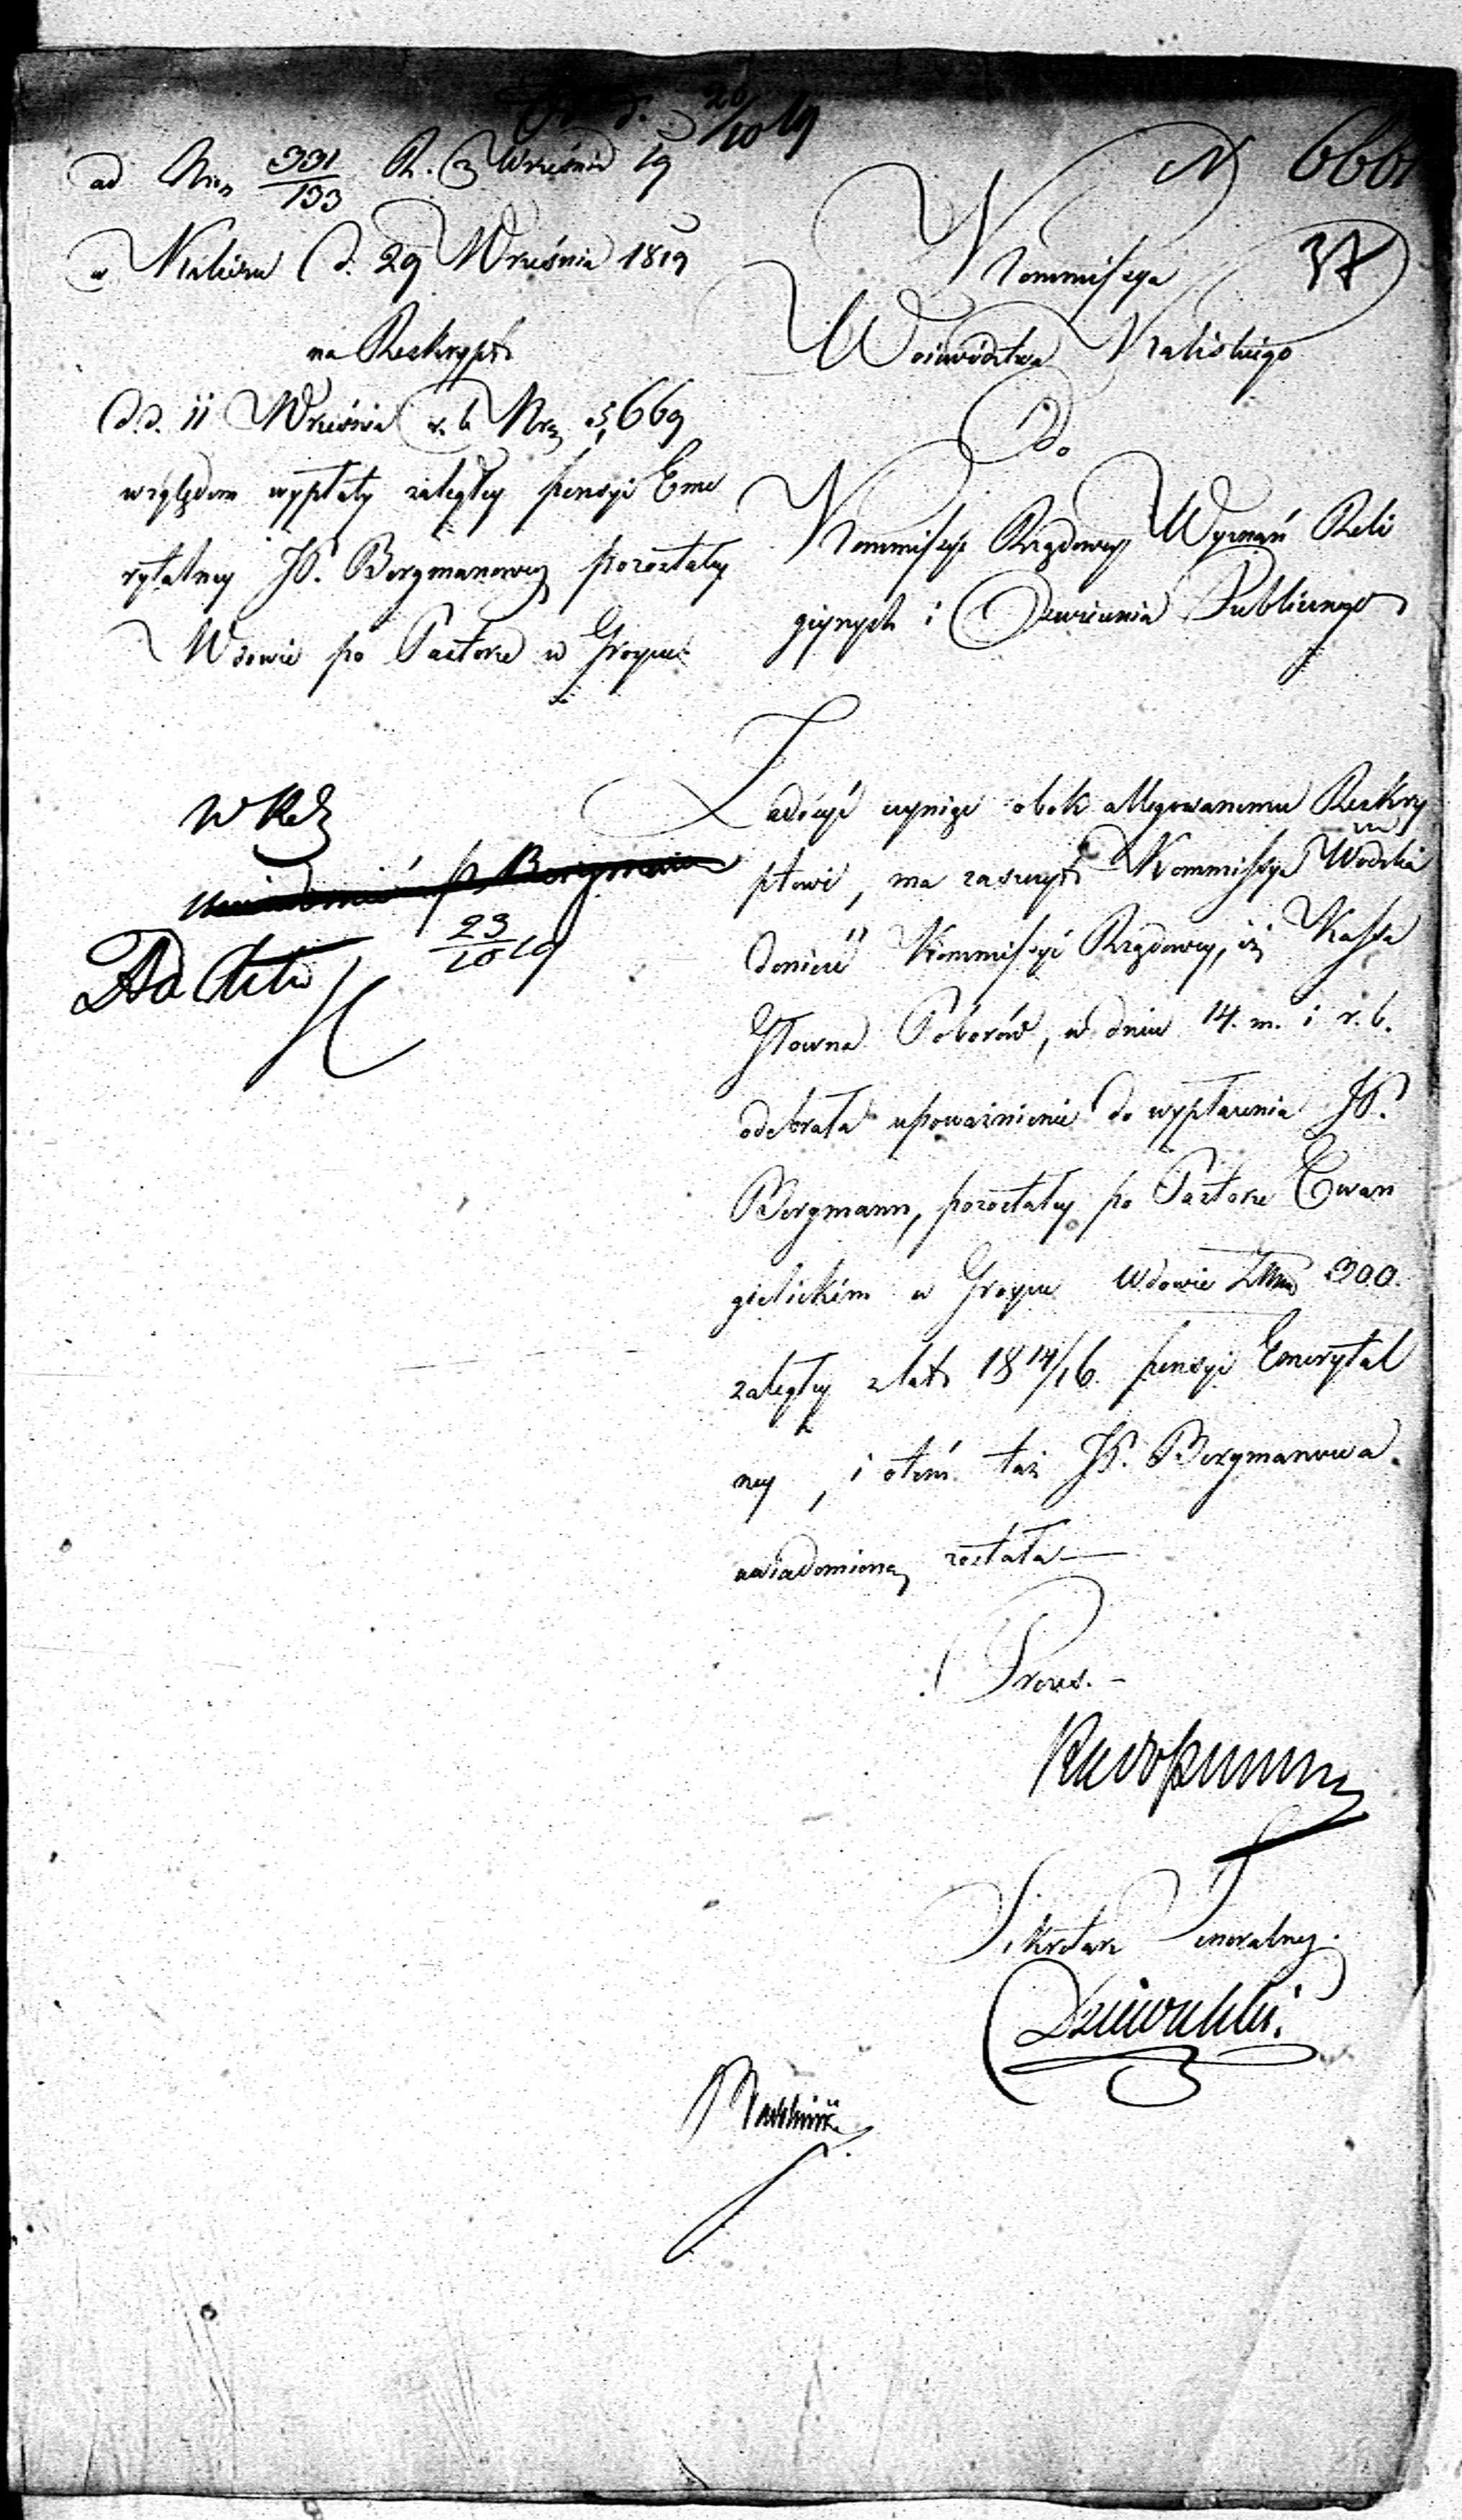 20/10 19
ad Nrm 331/133 R. 3 Września 19
N 666
w Kaliszu d. 29 Września 1819
37
na Reskrypt
d.d. 11 Września r. b. Nro 5,669
względem wypłaty zaległey pensyi Eme
rytalney JP. Bergmanowey pozostałey
Wdowie po Pastorze w Grojcu
Kommissya
Woiewództwa Kaliskiego
Do
Kommissyi Rządowey Wyznań Reli
giynych i Oświecenia Publicznego
Zadosyć czyniąc obok allegowanemu Reskry
ptowi, ma zaszczyt Kommissya Wdzka
donieść Kommissyi Rządowey, iż Kassa
Główna Poborów, w dniu 14. m. i r. b.
odebrała upoważnienie do wypłacenia JP.
Bergmann, pozostałey po Pastorze Ewan
gielickim w Grojcu Wdowie 300.
zaległey z lat 18 14/16 pensyi Emerytal
ney, i o tém taż JP. Bergmanowa
uwiadomioną została
uwiadomić p. Bergman
23/10 19
Ad Acta
Prezes.
Radoszewski
Sekretarz Jeneralny.